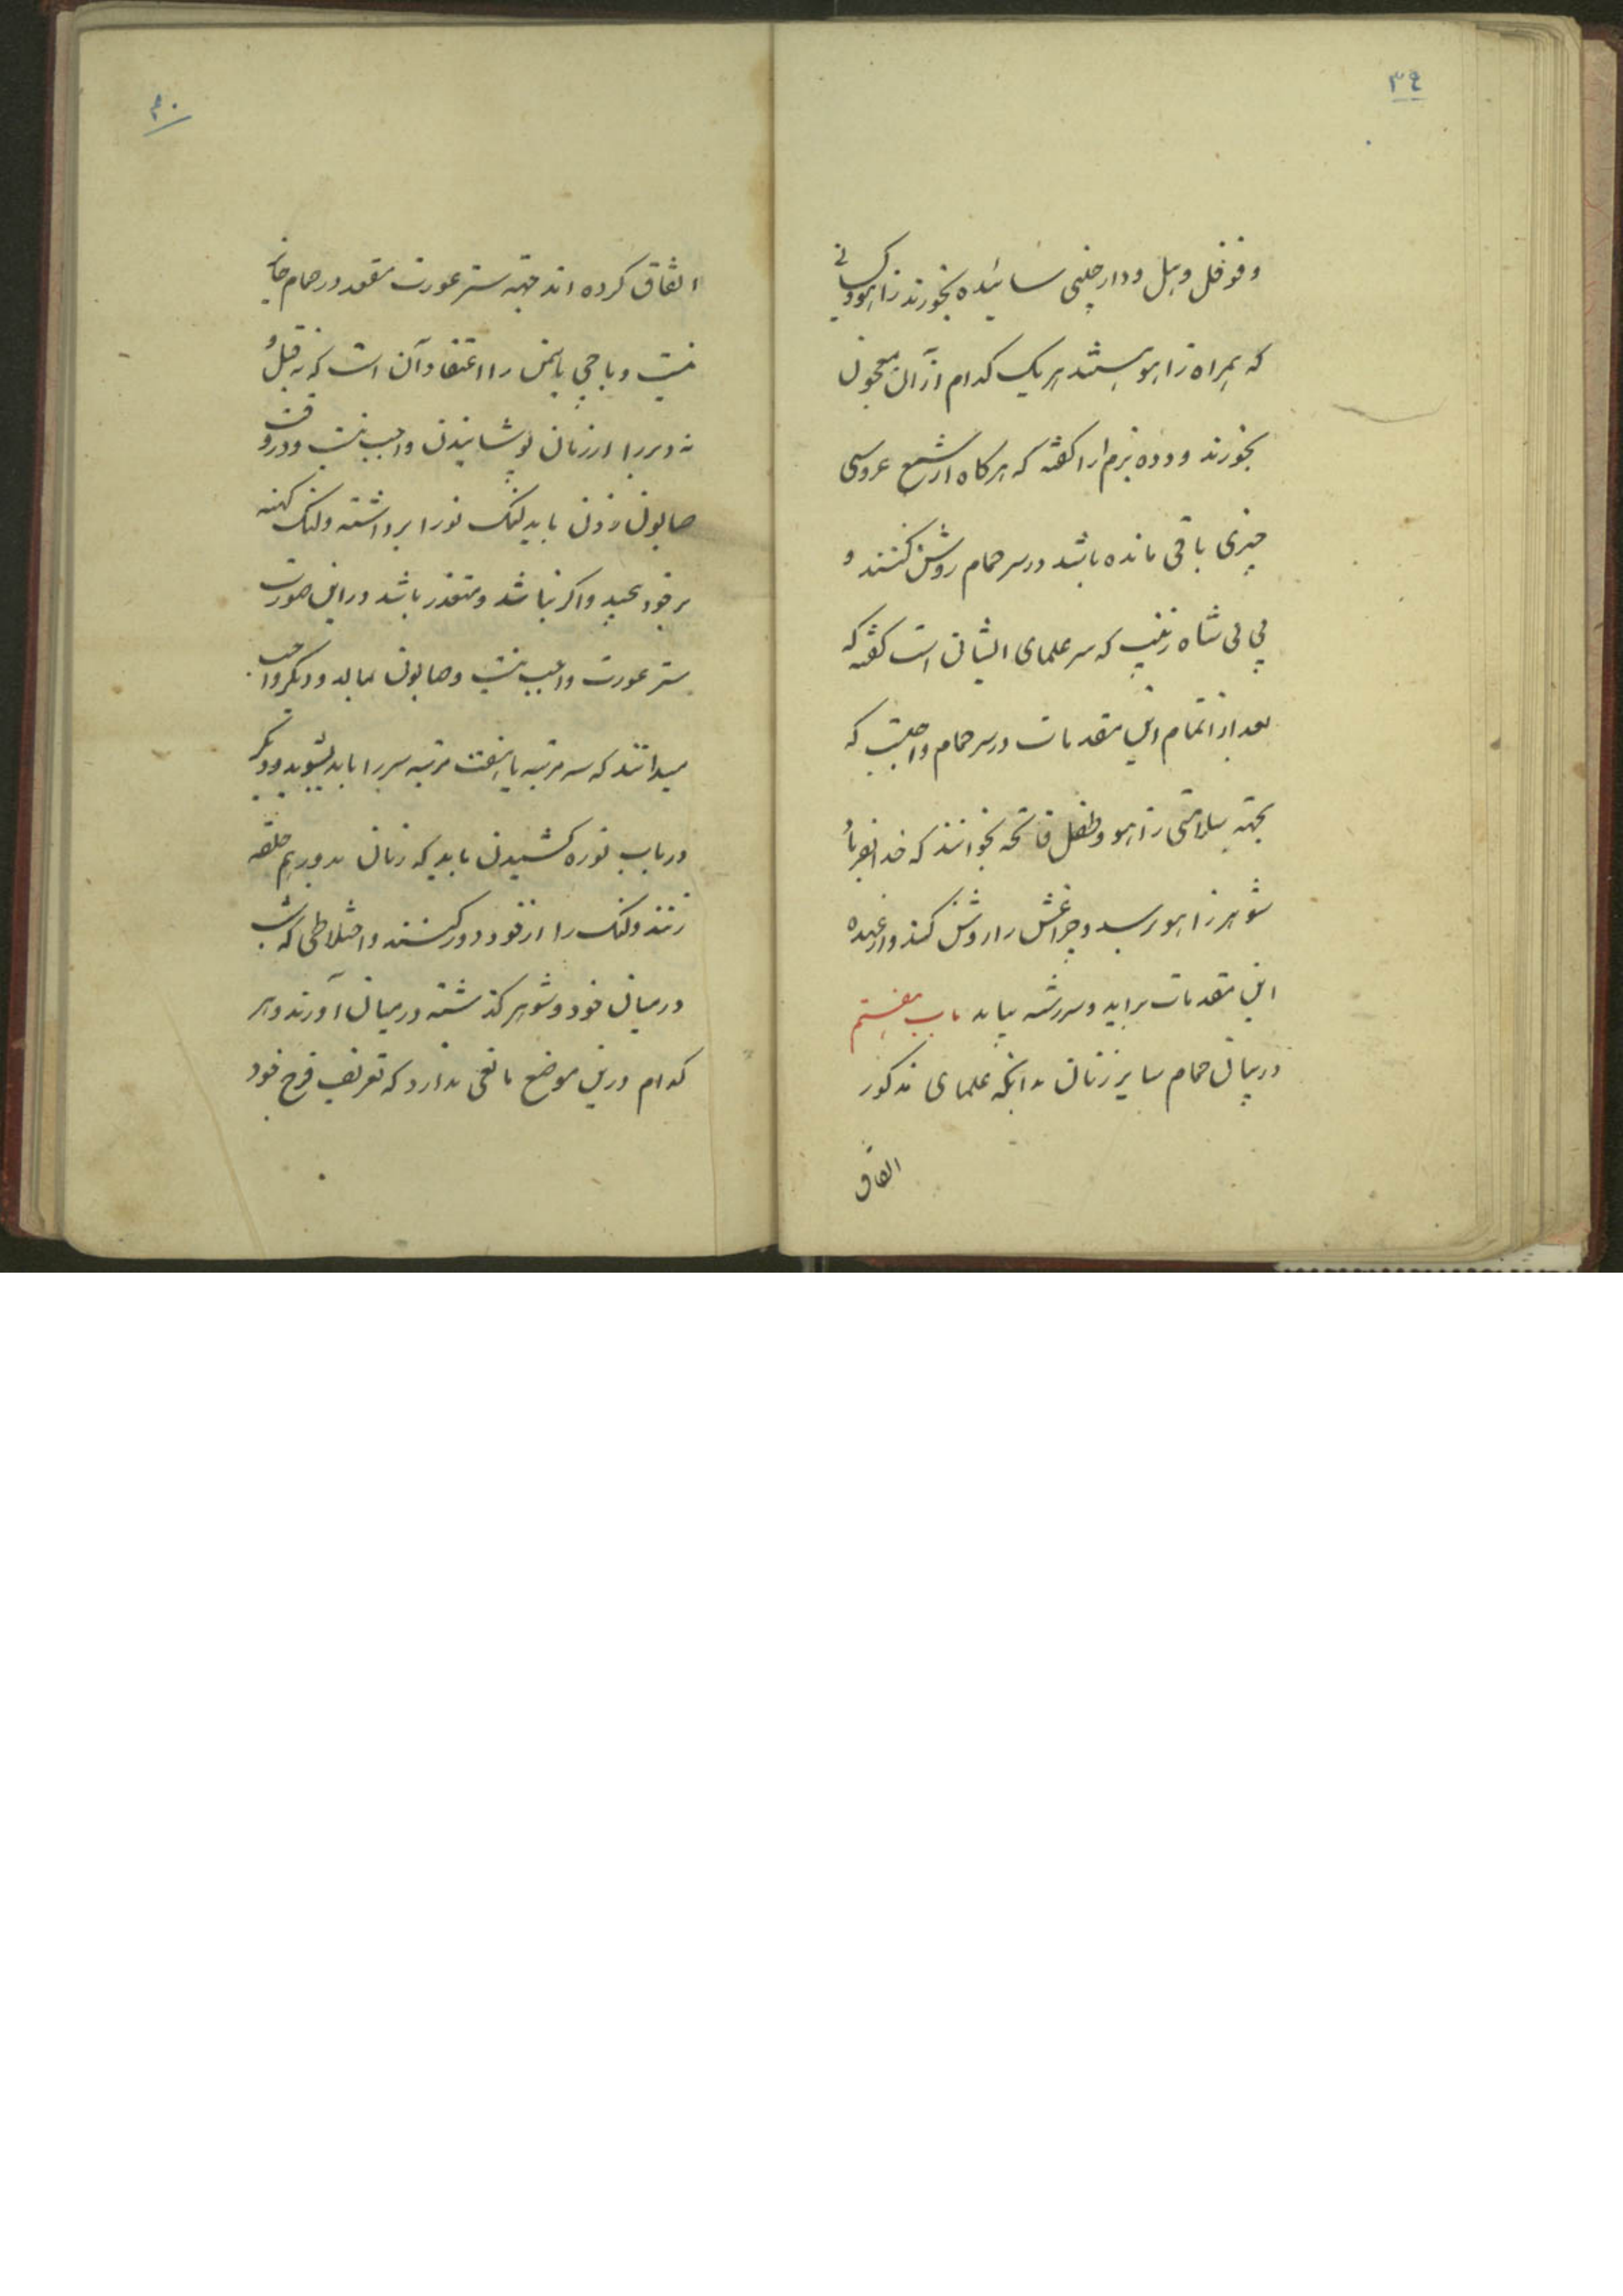 ۳۹
و فوفل و بیل و دارچینی سائیده بخورند زاهو و کسانی
که همراه زاهو هستند هر یک کدام از آن معجون
بخورند و دده بزم ارا گفته که هرکاه از شمع عروسی
چیزی باقی مانده باشد در سر حمام روشن کنند و
بی بی شاه زینب که سر علمای ایشان است گفته که
بعد از اتمام این مقدمات در سر حمام واجبست که
بجهته سلامتی زاهو و طفل فاتحه بخوانند که خدا بفریاد
شوهر زاهو برسد و چراغش را روشن کند و از عهده
این مقدمات براید و سررشته بیابد باب هفتم
در بیان حمام سایر زنان بدانکه علمای مذکور
اتفاق
۴۰
اتفاق کرده اند جهته ستر عورت مقعد در حمام جایز
نیست و باجی یاسمن را اعتقاد آن است که نه قبل و
نه دبر را از زنان پوشانیدن واجب نیست و در وقت
صابون زدن باید لنک نو را برداشته و لنک کهنه
بر خود بپیچد و اکر نباشد و متعذر باشد در این صورت
ستر عورت واجب نیست و صابون بمالد و دیکر واجب
میدانند که سه مرتبه یا هفت مرتبه سر را باید بشویند و دیکر
در باب نوره کشیدن باید که زنان بدور هم حلقه
زنند و لنک را از خود دور کنند و اختلاطی که شب
در میان خود و شوهر کذشته در میان آورند و هر
کدام درین موضع مانعی ندارد که تعریف فرج خود